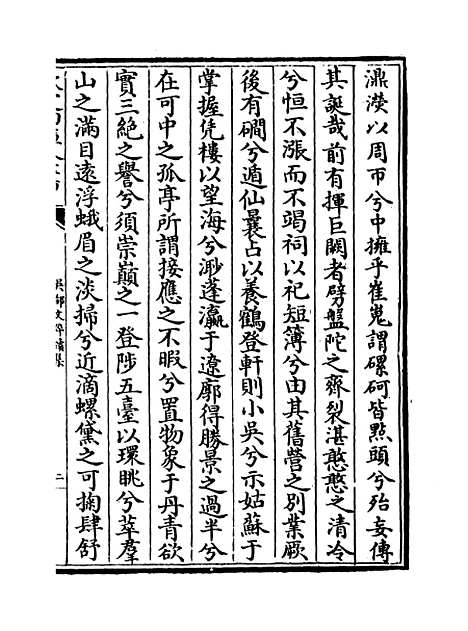 濎濙以周帀兮中擁乎崔嵬謂磥砢皆㸃頭兮殆妄傳
其誕哉前有揮巨闕者劈盤陀之齊裂湛憨憨之清冷
兮恒不漲而不竭祠以祀短簿兮由其舊營之别業厥
後有磵兮遁仙曩占以養鶴登軒則小吳兮示姑蘇于
掌握凭樓以望海兮渺蓬瀛于遼廓得勝景之過半兮
在可中之孤亭所謂接應之不暇兮置物象于丹青欲
實三絶之譽兮須崇巔之一登陟五臺以環眺兮萃羣
山之滿目遠浮蛾眉之淡掃兮近滴螺黛之可掬肆舒
吳都文粹續集
二